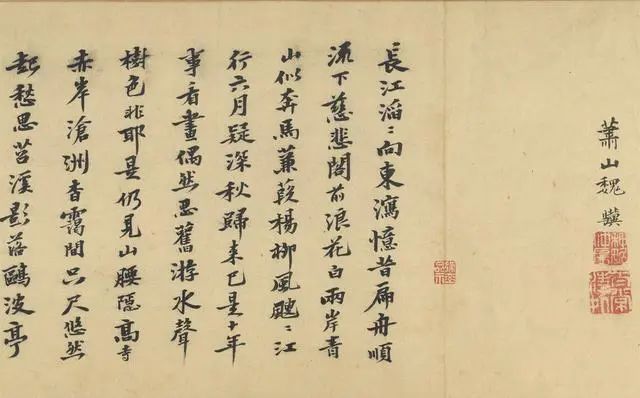 蕭山魏驥
長江滔〻向東瀉憶昔扁舟順
流下慈悲閣前浪花白兩岸青
山似奔馬蒹葭楊柳風颼〻江
行六月疑深秋歸来已是十年
事看畫偶然思舊游水聲
樹色非耶是仍見山腰隱髙寺
赤岸滄洲杳靄間只尺悠然
起愁思苕溪影落鷗波亭